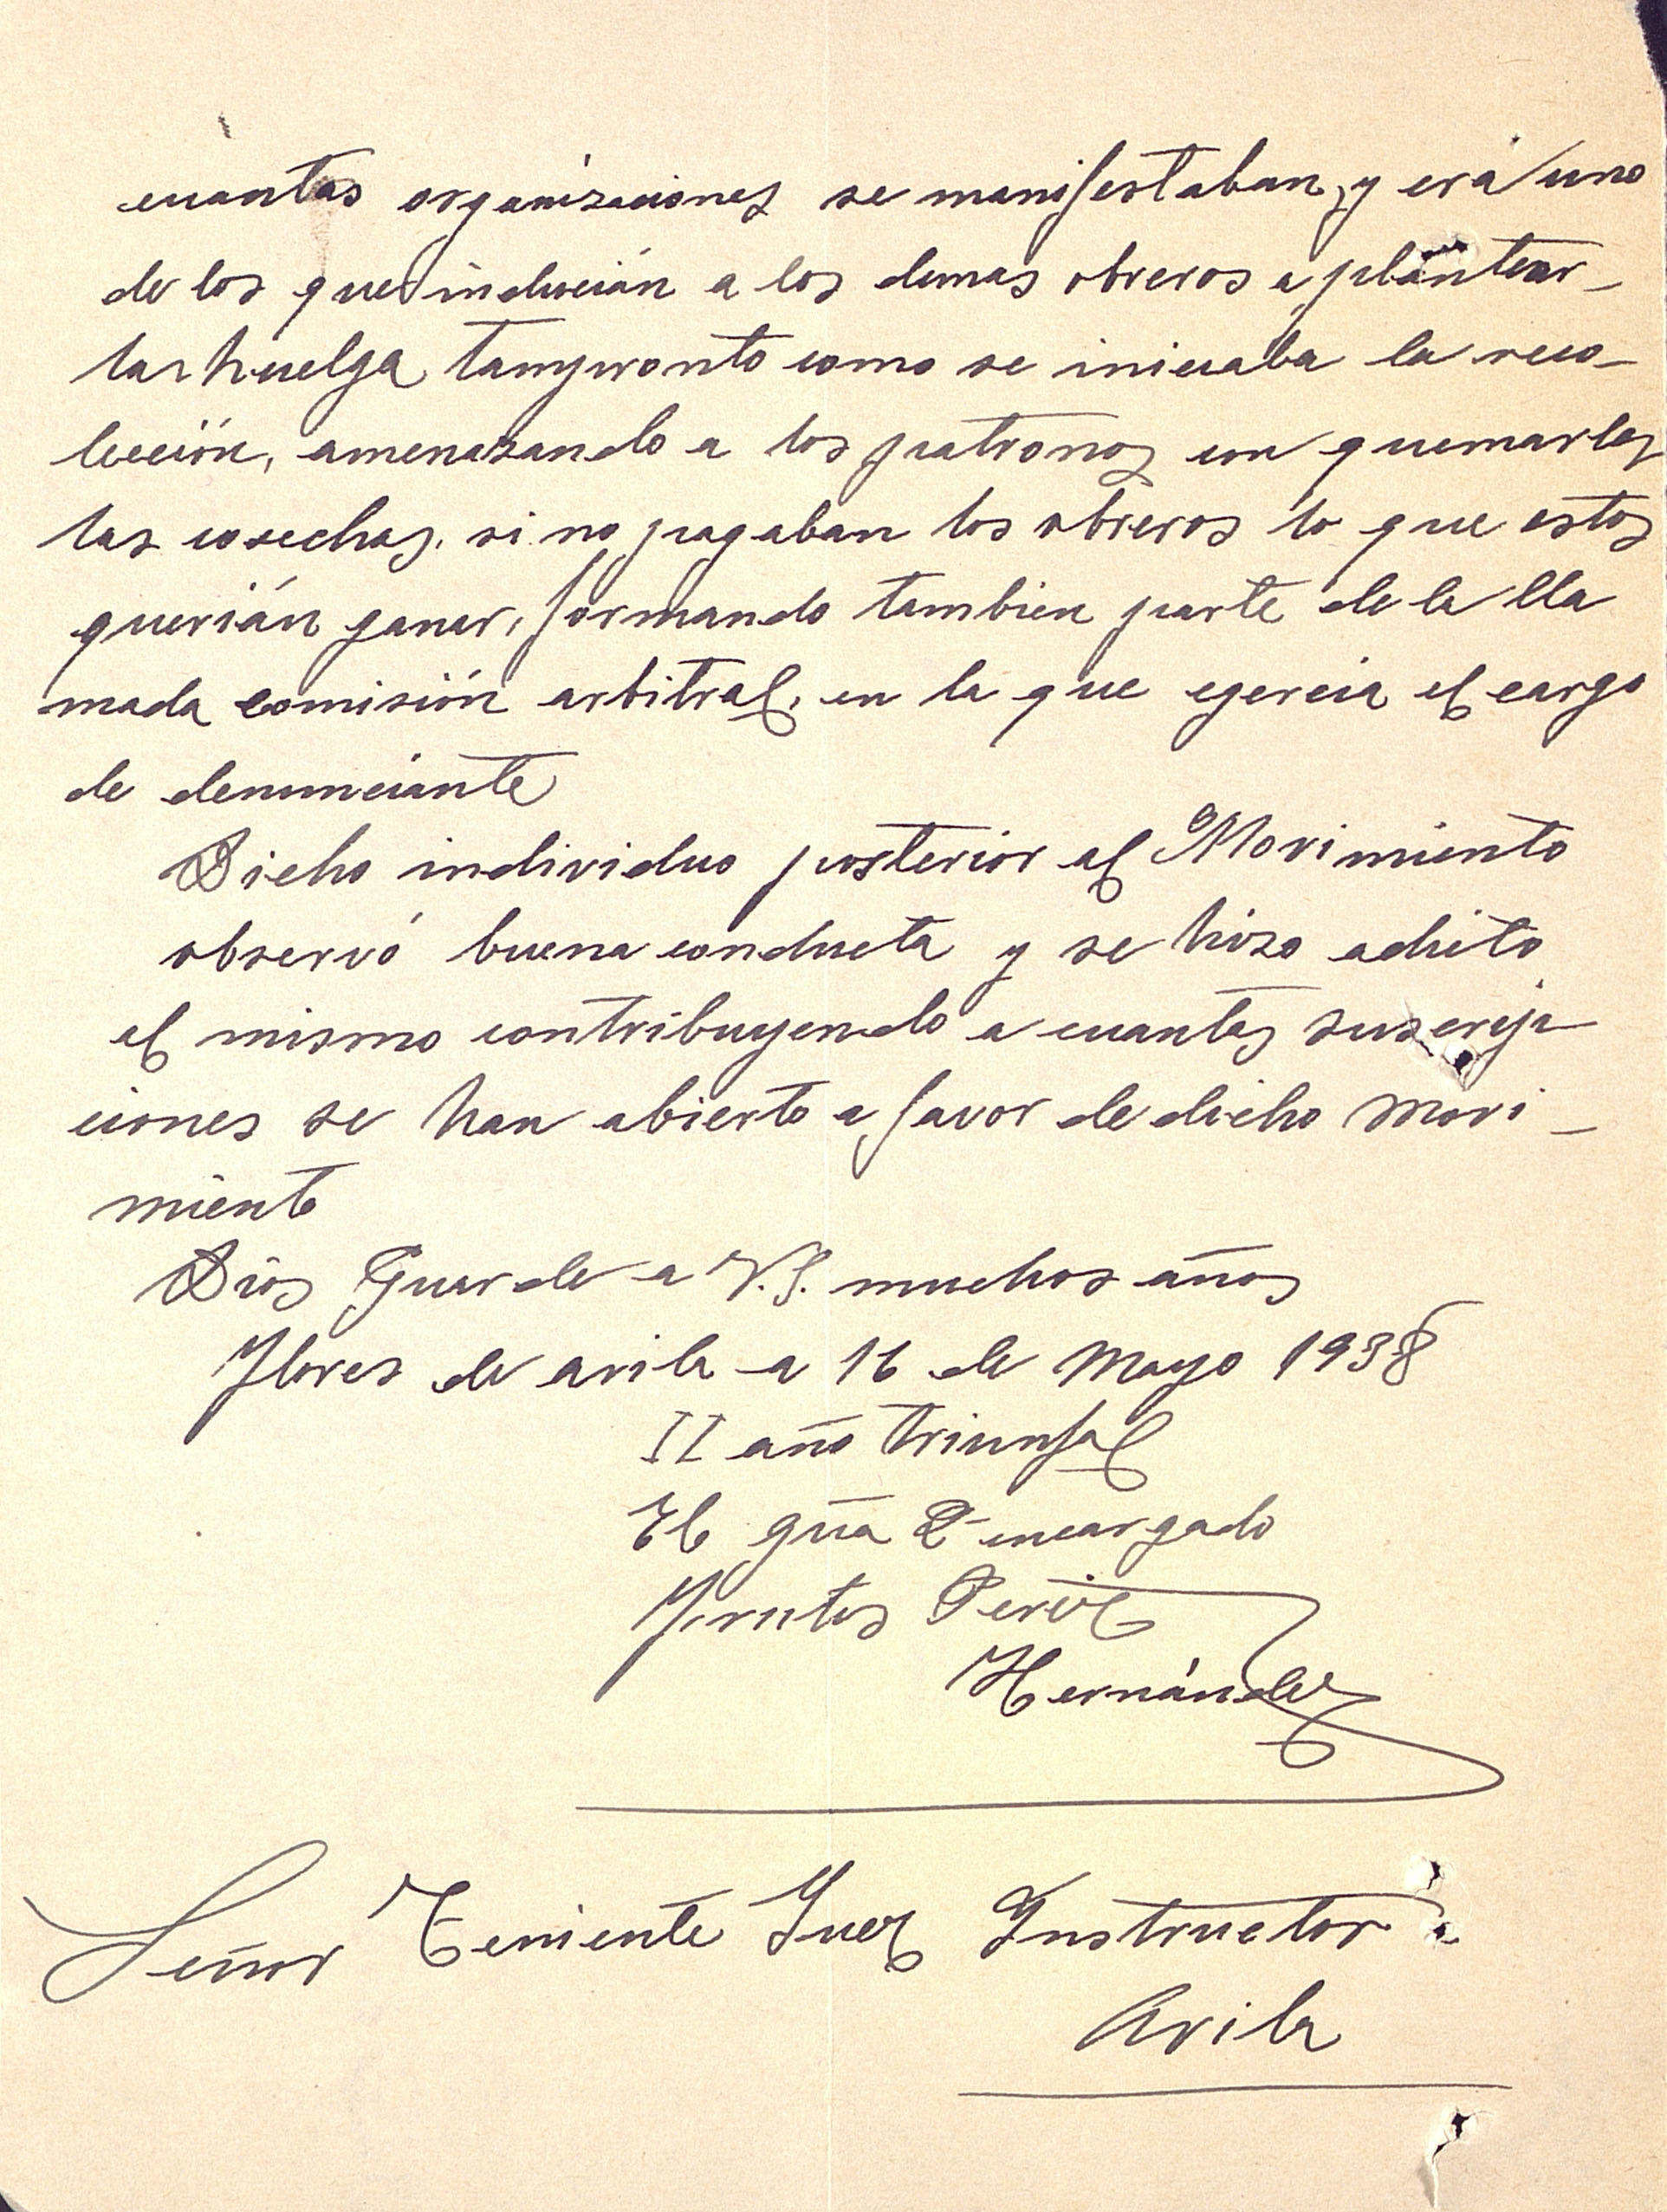 cuantas organizaciones se manifestaban, y era uno
de los que inducián a los demas obreros a plantear_
las huelga tampronto como se iniciaba la reco_
lección, amenazando a los patronos con quemarles
las cosechas, si no pagaban los obreros lo que estos
querián ganar, formando tambien parte de la lla
mada comisión arbitral, en la que egercia el cargo
de denunciante
Dicho individuo posterior al Movimiento
observó buena conducta y se hizo adicto
al mismo contribuyendo a cuantas suscrip
ciones se han abierto a favor de dicho Movi_
miento
Dios Guarde a V.S. muchos años
Flores de avila a 16 de Mayo 1938
II año triunfal
El guia 2º encargado
Frutos Perez
Hernández
Señor Teniente Juez Instructor
Avila